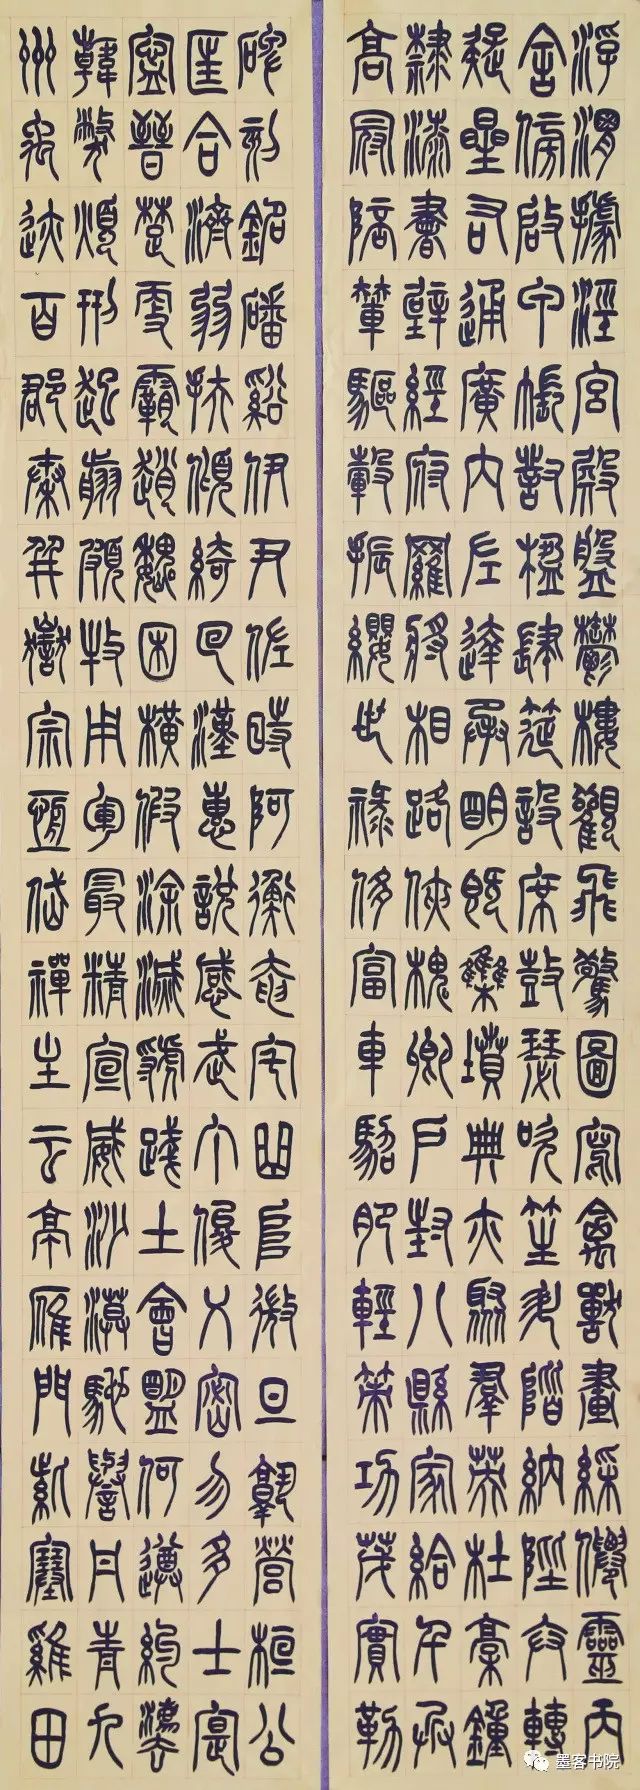 浮渭據涇宮殿盤鬱樓觀飛驚圖寫禽獸畫綵僊靈丙
舍傍啟甲帳對楹肆筵設席鼓瑟吹笙升階納陛弁轉
疑星右通廣內左達承明既集墳典亦聚群英杜稾鍾
隸漆書壁經府羅將相路俠槐卿戶封八縣家給千兵
高冠陪輦驅轂振纓世祿侈富車駕肥輕策功茂實勒
碑刻銘磻谿伊尹佐時阿衡奄宅曲阜微旦孰營桓公
匡合濟弱扶傾綺回漢惠說感武丁俊乂密勿多士寔
寧晉楚更霸趙魏困橫假涂滅虢踐土會盟何遵約法
韓弊煩刑起翦頗牧用軍最精宣威沙漠馳譽丹青九
州禹迹百郡秦并嶽宗恆岱禪主云亭雁門紫塞雞田
墨客书院